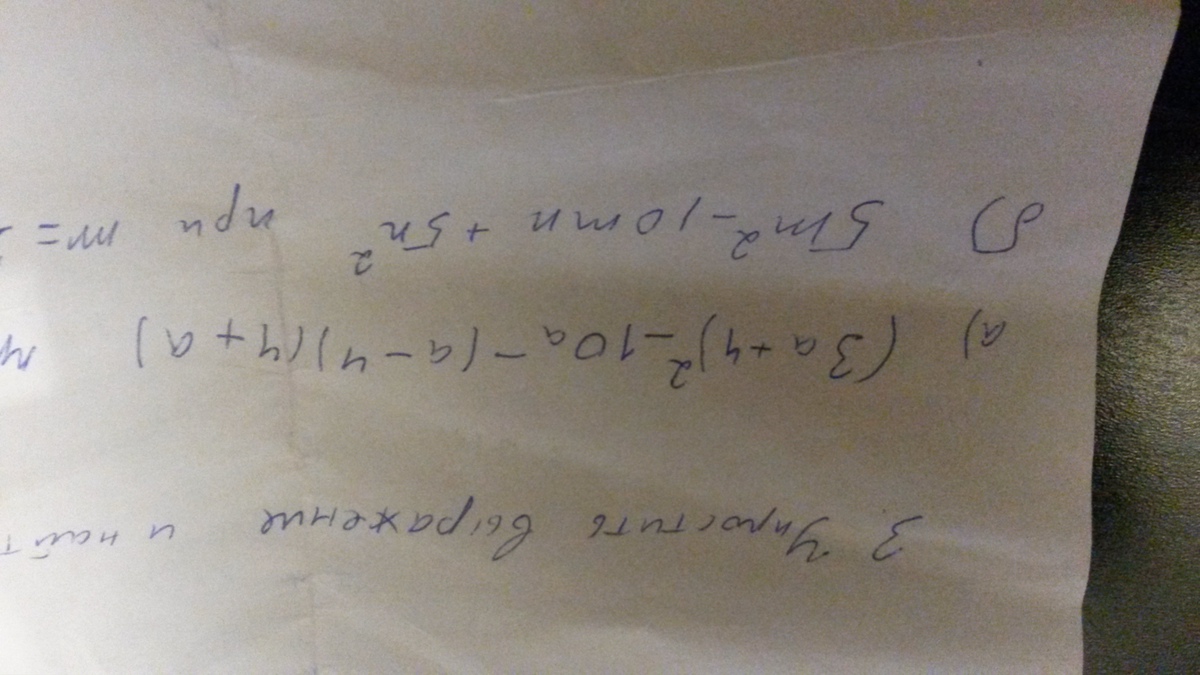 3. Упростить выражение и найт
а) (3a+4)²-10a-(a-4)(4+a)
б) 5m²-10mn+5n² при m=